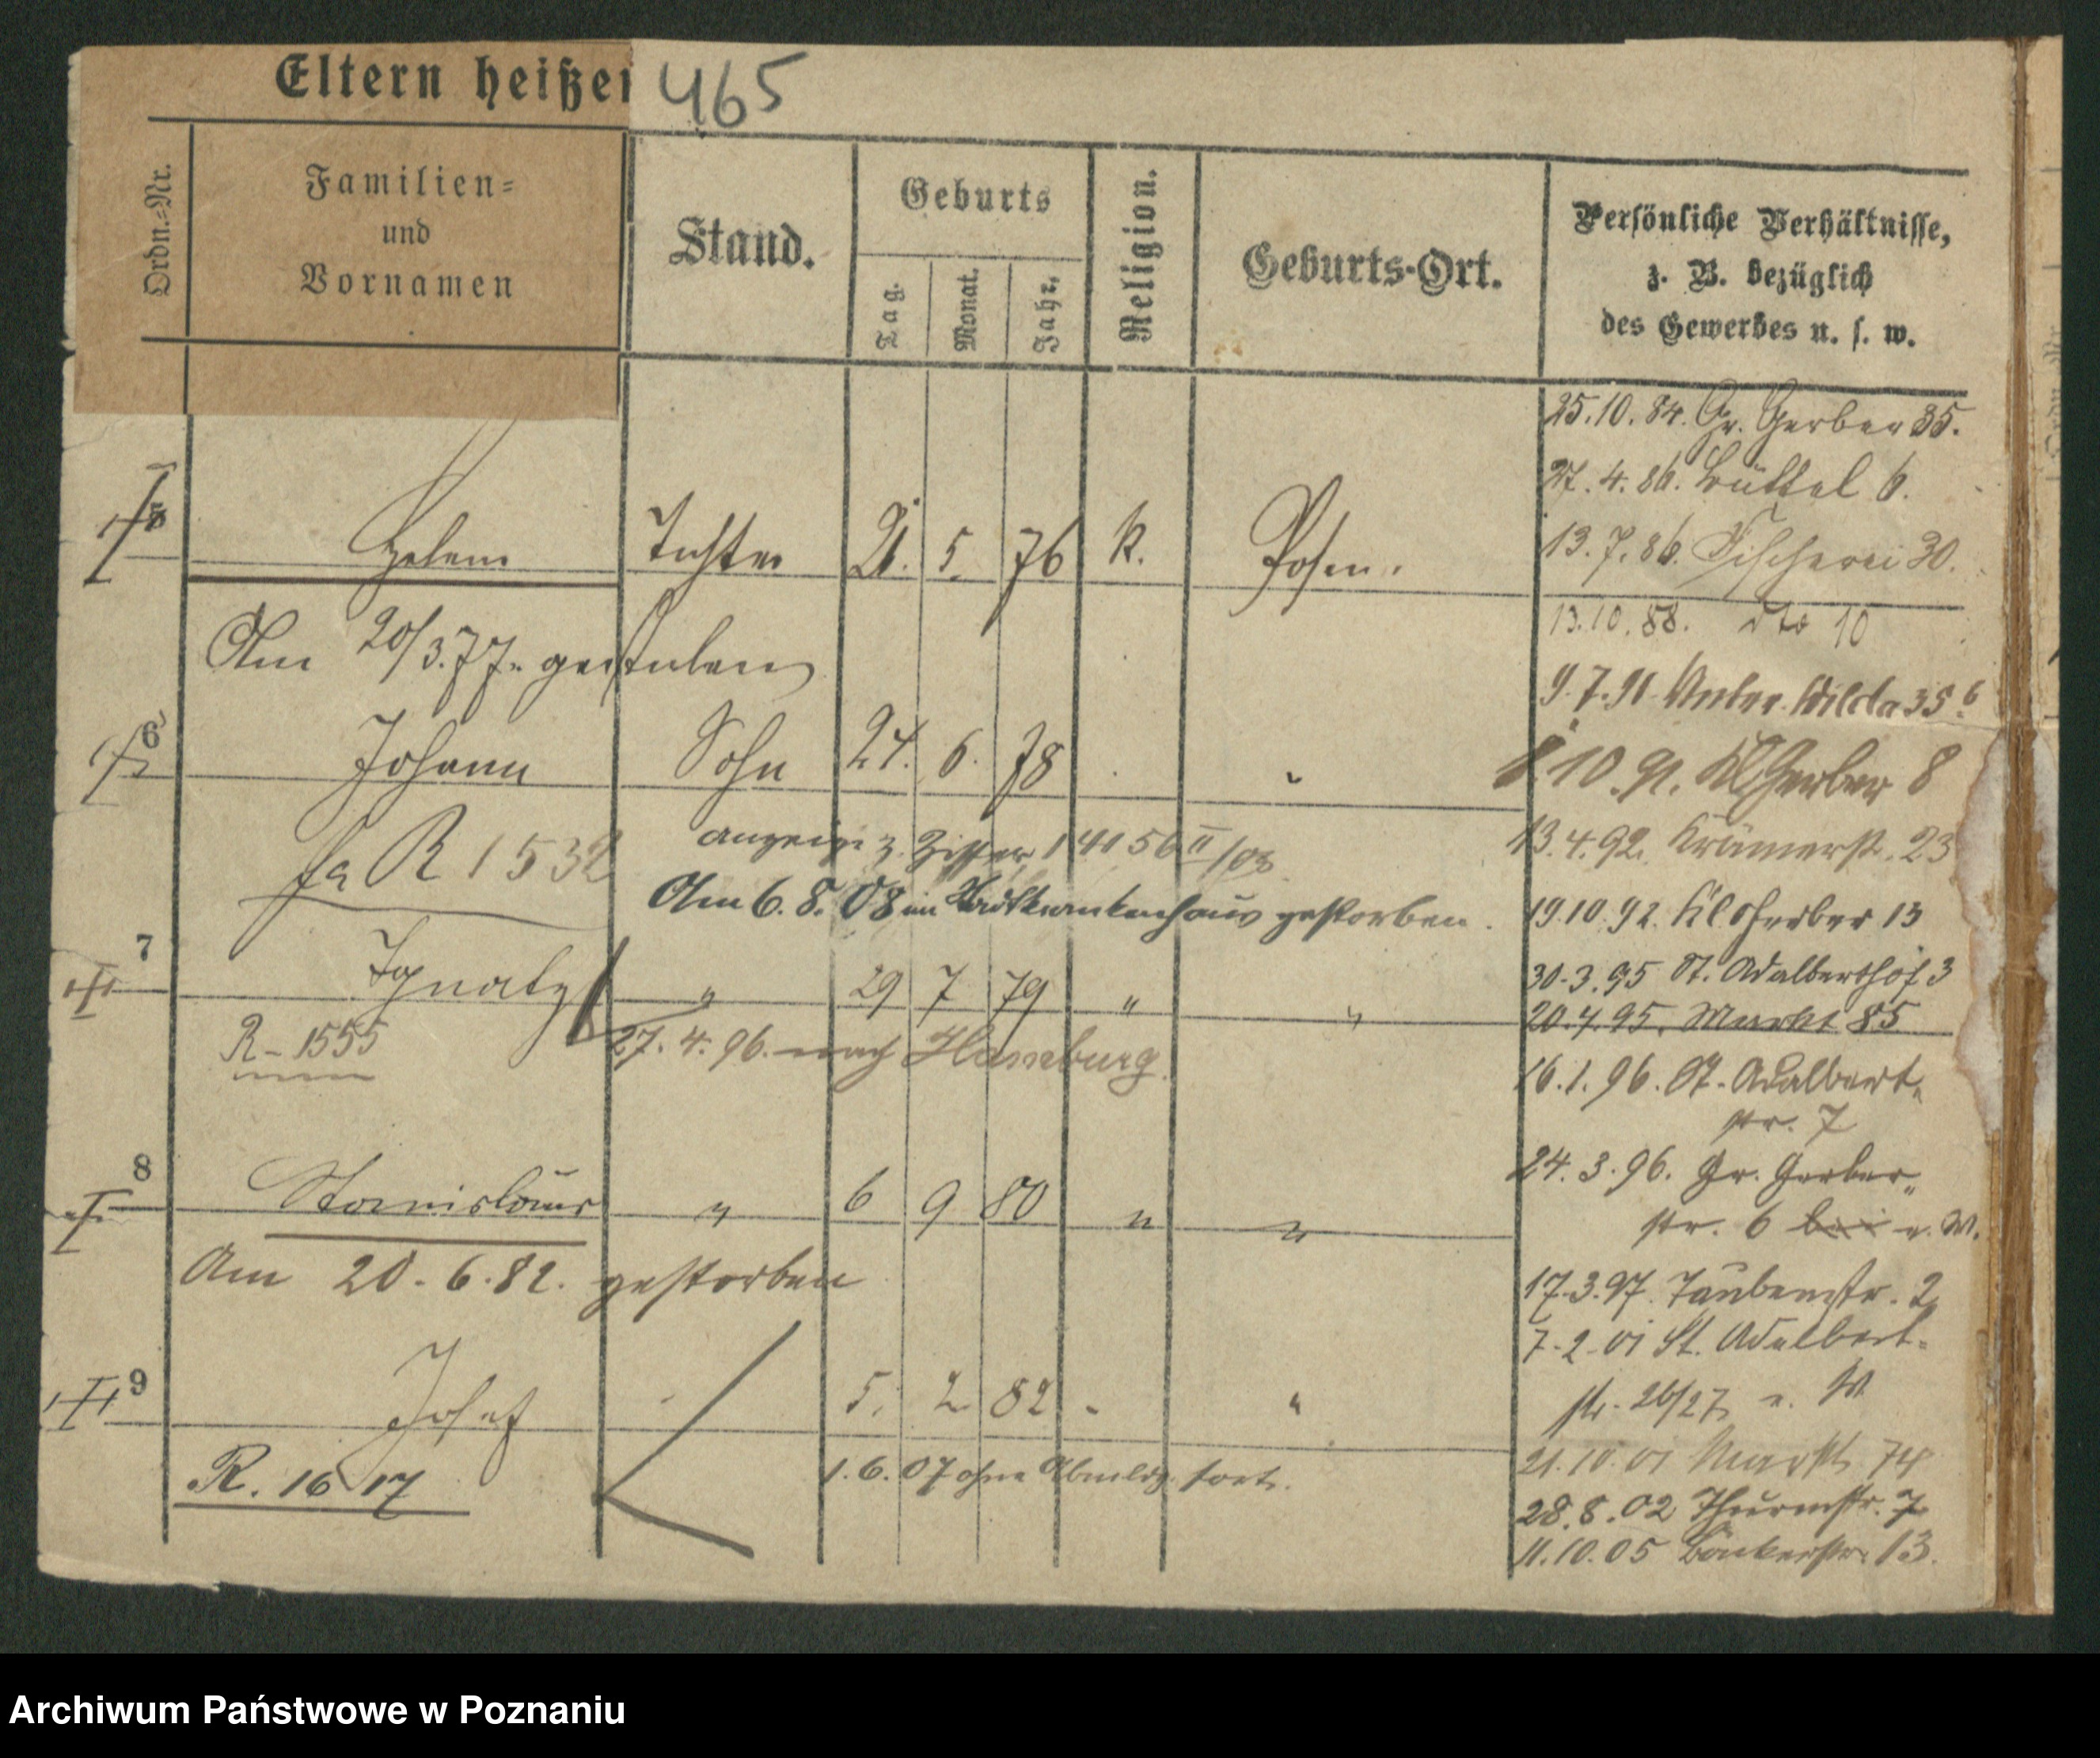 Eltern heißen
465
Ordn.-Nr.
Familien-
und
Vornamen
Stand.
Geburts
Tag.
Monat.
Jahr.
Religion.
Geburts-Ort.
Persönliche Verhältnisse,
z. B. bezüglich
des Gewerbes u. s. w.
25.10.84. Gr. Gerber 35.
27.4.86. Büttel 6.
13.7.86. Fischerei 30.
5 Helene Tochter 21. 5. 76 k. Posen.
13.10.88. dto 10
Am 20/3.77. gestorben
9.7.91 Unter Wilda 35 6
6 Johann Sohn 24. 6. 78 "
8.10.91. Kl Gerber 8
fa R 1532
13.4.92. Krämerstr. 23
Am 6.8.08 im Stadtkrankenhaus gestorben.
19.10.92. Kl Gerber 13
7 Ignatz " 29 7 79 " "
30.3.95 St. Adalberthof 3
20.4.95. Markt 85
R-1555
27.4.96. nach Hamburg.
16.1.96. St. Adalbert-
str. 7
24.3.96. Gr. Gerber-
str. 6 bei u. W.
8 Stanislaus " 6 9 80 " "
Am 20.6.82. gestorben
17.3.97. Taubenstr. 2
7.2.01 St. Adalbert-
str. 26/27 u. W.
9 Josef " 5. 2 82 " "
R. 1617
1.6.07 ohne Abmeldg. fort.
21.10.01 Markt 74
28.8.02 Thurmstr. 7
11.10.05 Bäckerstr. 13.
Archiwum Państwowe w Poznaniu